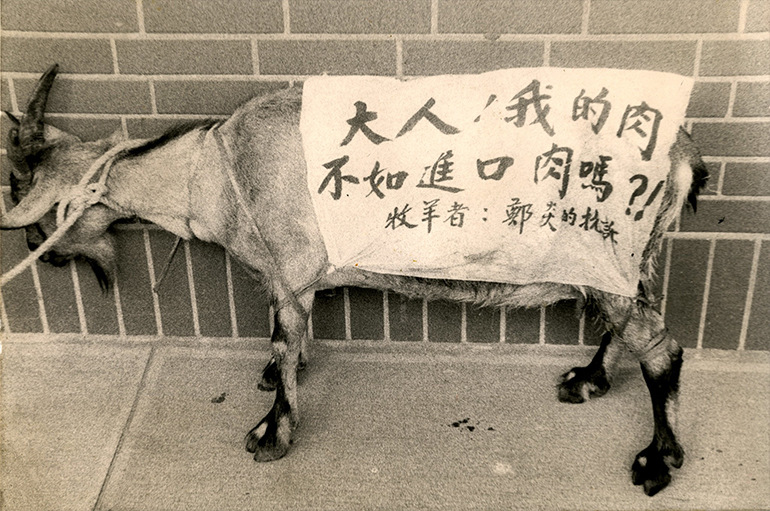 大人!我的肉
不如進口肉嗎?!
牧羊者:鄭炎的抗訴